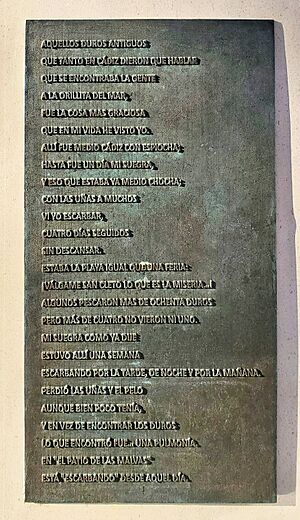 AQUELLOS DUROS ANTIGUOS
QUE TANTO EN CÁDIZ DIERON QUE HABLAR
QUE SE ENCONTRABA LA GENTE
A LA ORILLITA DEL MAR,
FUE LA COSA MAS GRACIOSA
QUE EN MI VIDA HE VISTO YO.
ALLÍ FUE MEDIO CÁDIZ CON ESPIOCHA;
HASTA FUE UN DÍA MI SUEGRA,
Y ESO QUE ESTABA YA MEDIO CHOCHA;
CON LAS UÑAS A MUCHOS
VI YO ESCARBAR,
CUATRO DÍAS SEGUIDOS
SIN DESCANSAR.
ESTABA LA PLAYA IGUAL QUE UNA FERIA:
¡VÁLGAME SAN CLETO LO QUE ES LA MISERIA...!
ALGUNOS PESCARON MAS DE OCHENTA DUROS
PERO MÁS DE CUATRO NO VIERON NI UNO.
MI SUEGRA COMO YA DIJE
ESTUVO ALLÍ UNA SEMANA
ESCARBANDO POR LA TARDE, DE NOCHE Y POR LA MAÑANA.
PERDIÓ LAS UÑAS Y EL PELO
AUNQUE BIEN POCO TENÍA,
Y EN VEZ DE ENCONTRAR LOS DUROS
LO QUE ENCONTRÓ FUE... UNA PULMONÍA.
EN "EL PATIO DE LAS MALVAS"
ESTÁ "ESCARBANDO" DESDE AQUEL DÍA.